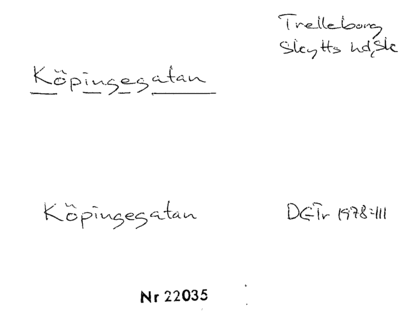 Trelleborg
Skytts hd, Sk
Köpingegatan
Köpingegatan
DGTr 1978:111
Nr 22035